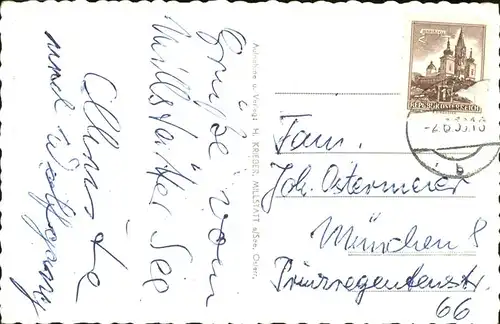 Grüße vom
Millstätter See
Almut
und Wolfgang
Aufnahme u. Verlag: H. KREBER, MILLSTATT a/See, Österr.
REPUBLIK ÖSTERREICH
Fam.
Joh. Ostermeier
München 8
Prinzregentenstr.
66